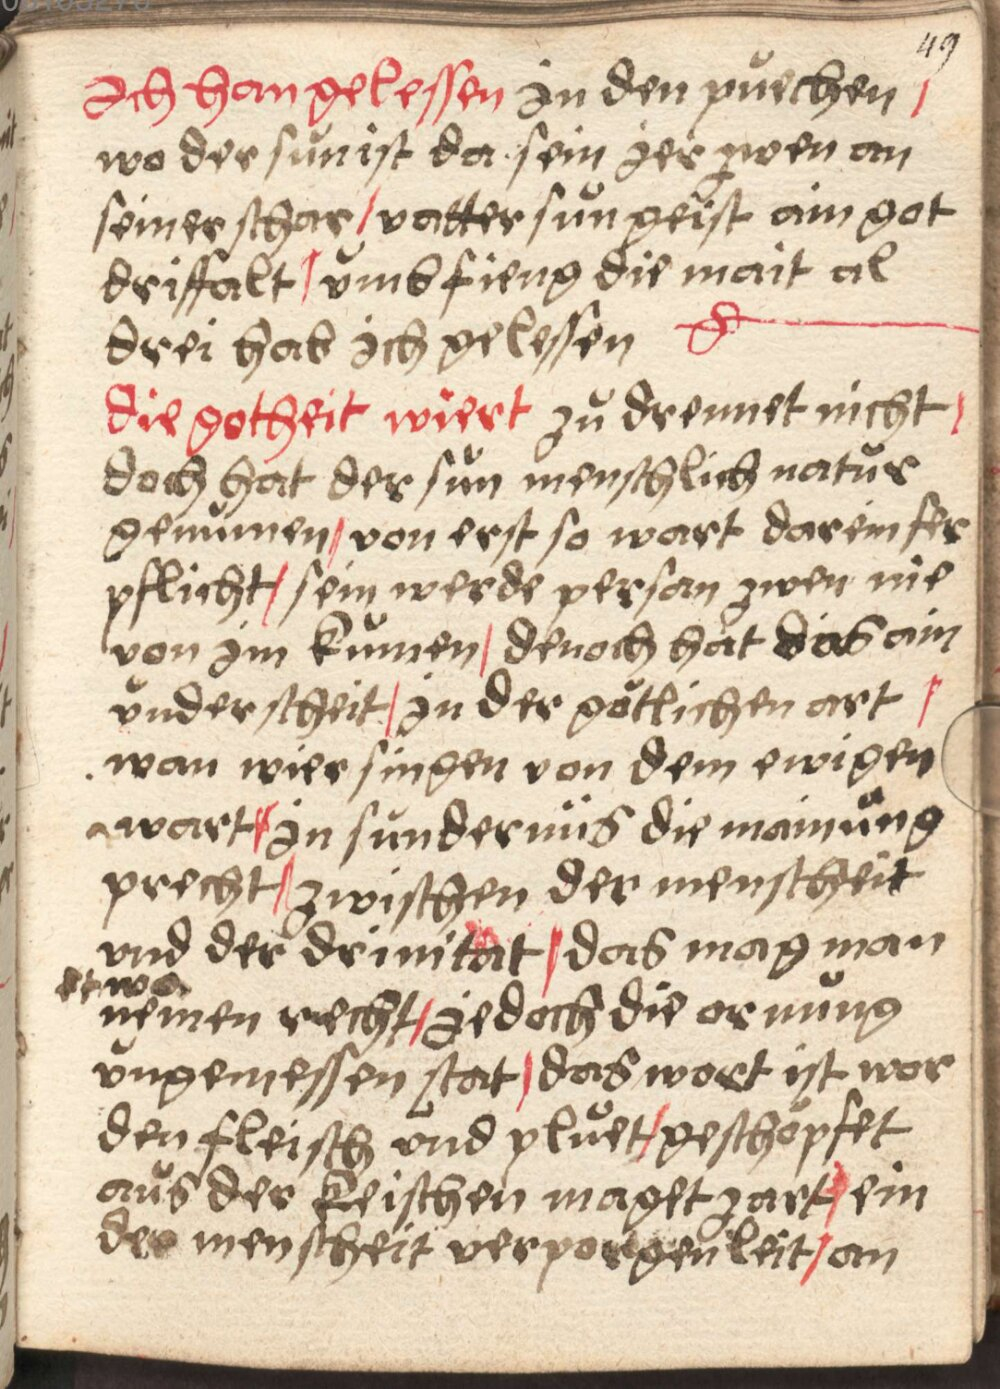 49
Ich han gelessen jn den puechen /
wo der sun ist da sein jer zwen an
seiner schar / vatter sun geist ain got
driffalt / vmbfieng die mait al
drei hab ich gelessen
die gotheit wiert zu drennet nicht /
doch hat der sun menschlich natur
genumen / von erst so wart darein fer
pflicht / sein werde person zwen nie
von jm kumen / denoch hat das ain
vnderscheit / jn der gotlichen art /
wan wier singen von dem ewigen
wart / jn sundernus die mainung
precht / zwischen der menscheit
vnd der drinitat / das mag man
etwo
nemen recht / jedoch die ornung
vngemessen stat / das wort ist wor
den fleisch vnd pluet / geschopfet
aus der keischen maget zart / ein
der menscheit verporgen leit / an